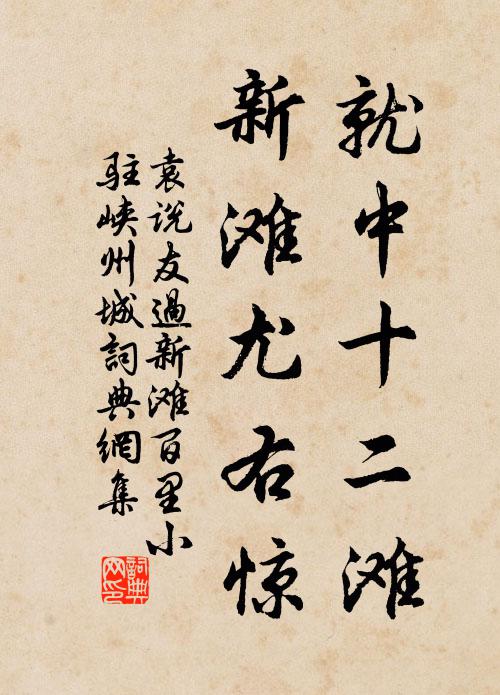 就中十二滩
新滩尤右惊
袁说友過新滩百里小
駐峡州城詞典網集
詞典网印